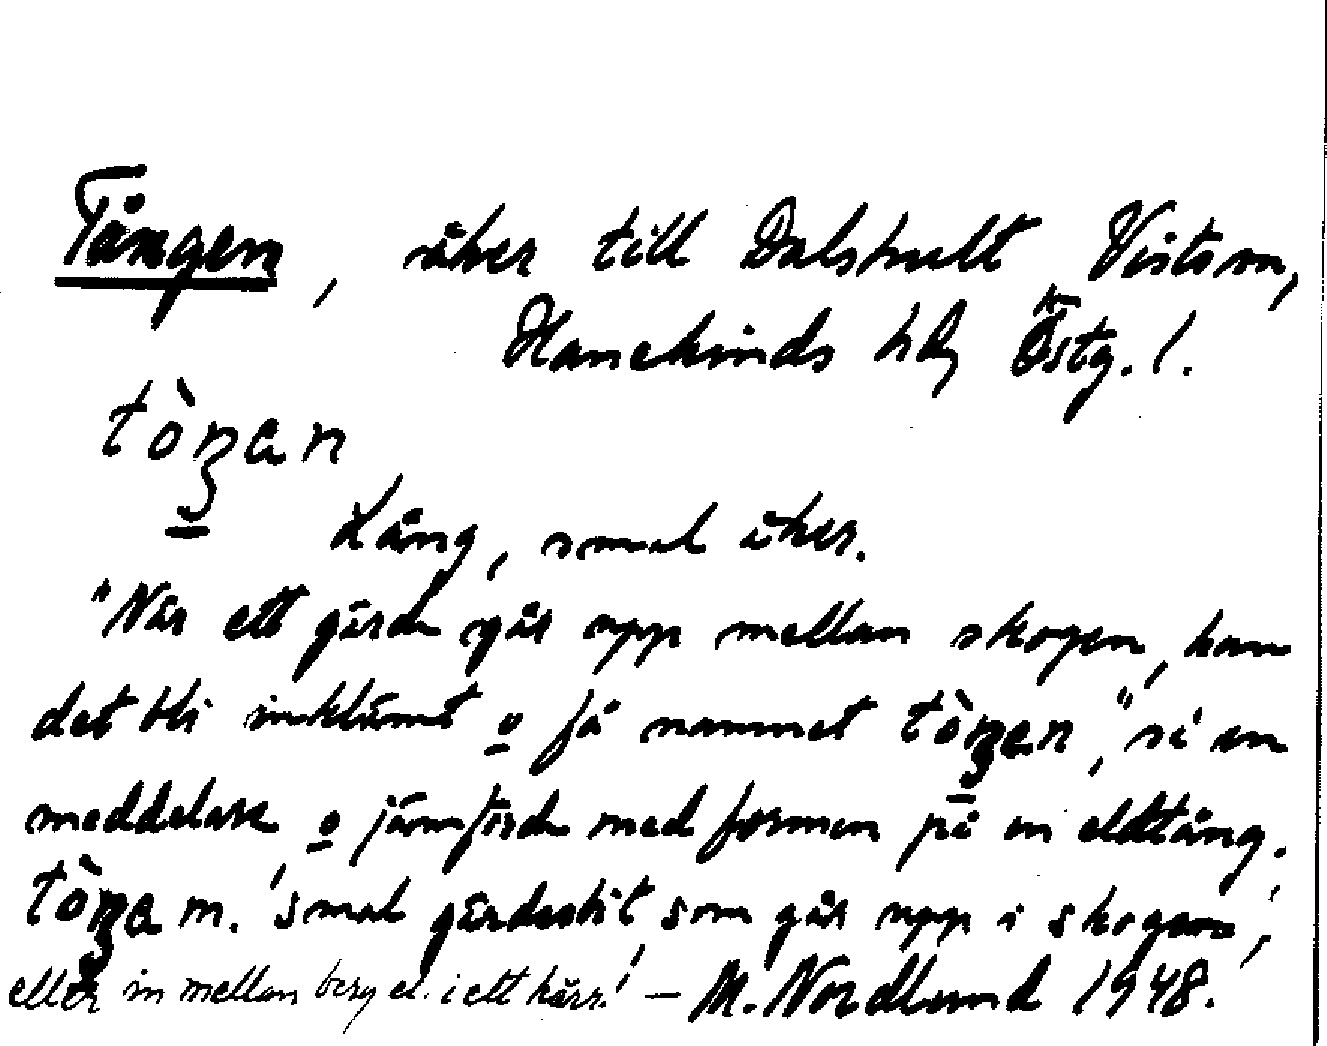 Tången, åker till Dalshult Vists sn,
Hanekinds hd, Östg. l.
tòŋan
Lång, smal åker.
"När ett gärde går upp mellan skogen, kan
det bli inklämt o få namnet tòŋen", sä en
meddelare o jämförde med formen på en eldtång.
tòŋa m. 'smal gärdesbit, som går upp i skogen',
eller in mellan berg el. i ett kärr.' — M. Nordlund 1948.